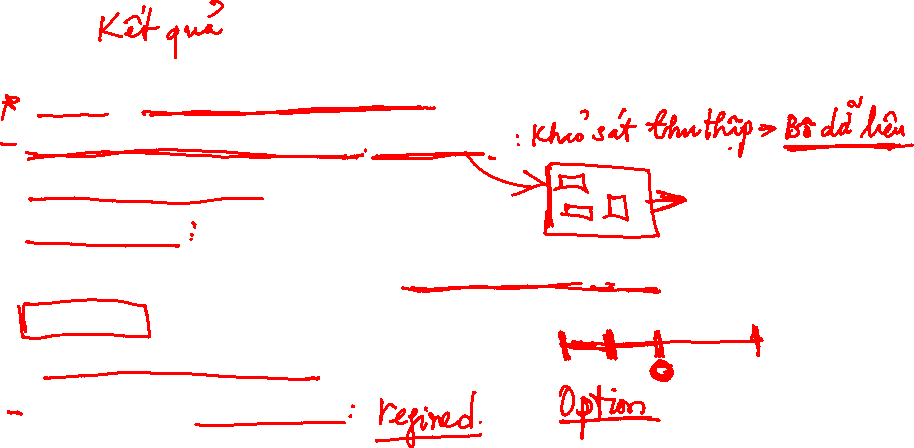 Kết quả
: Khảo sát thu thập => Bộ dữ liệu
: regired. Option